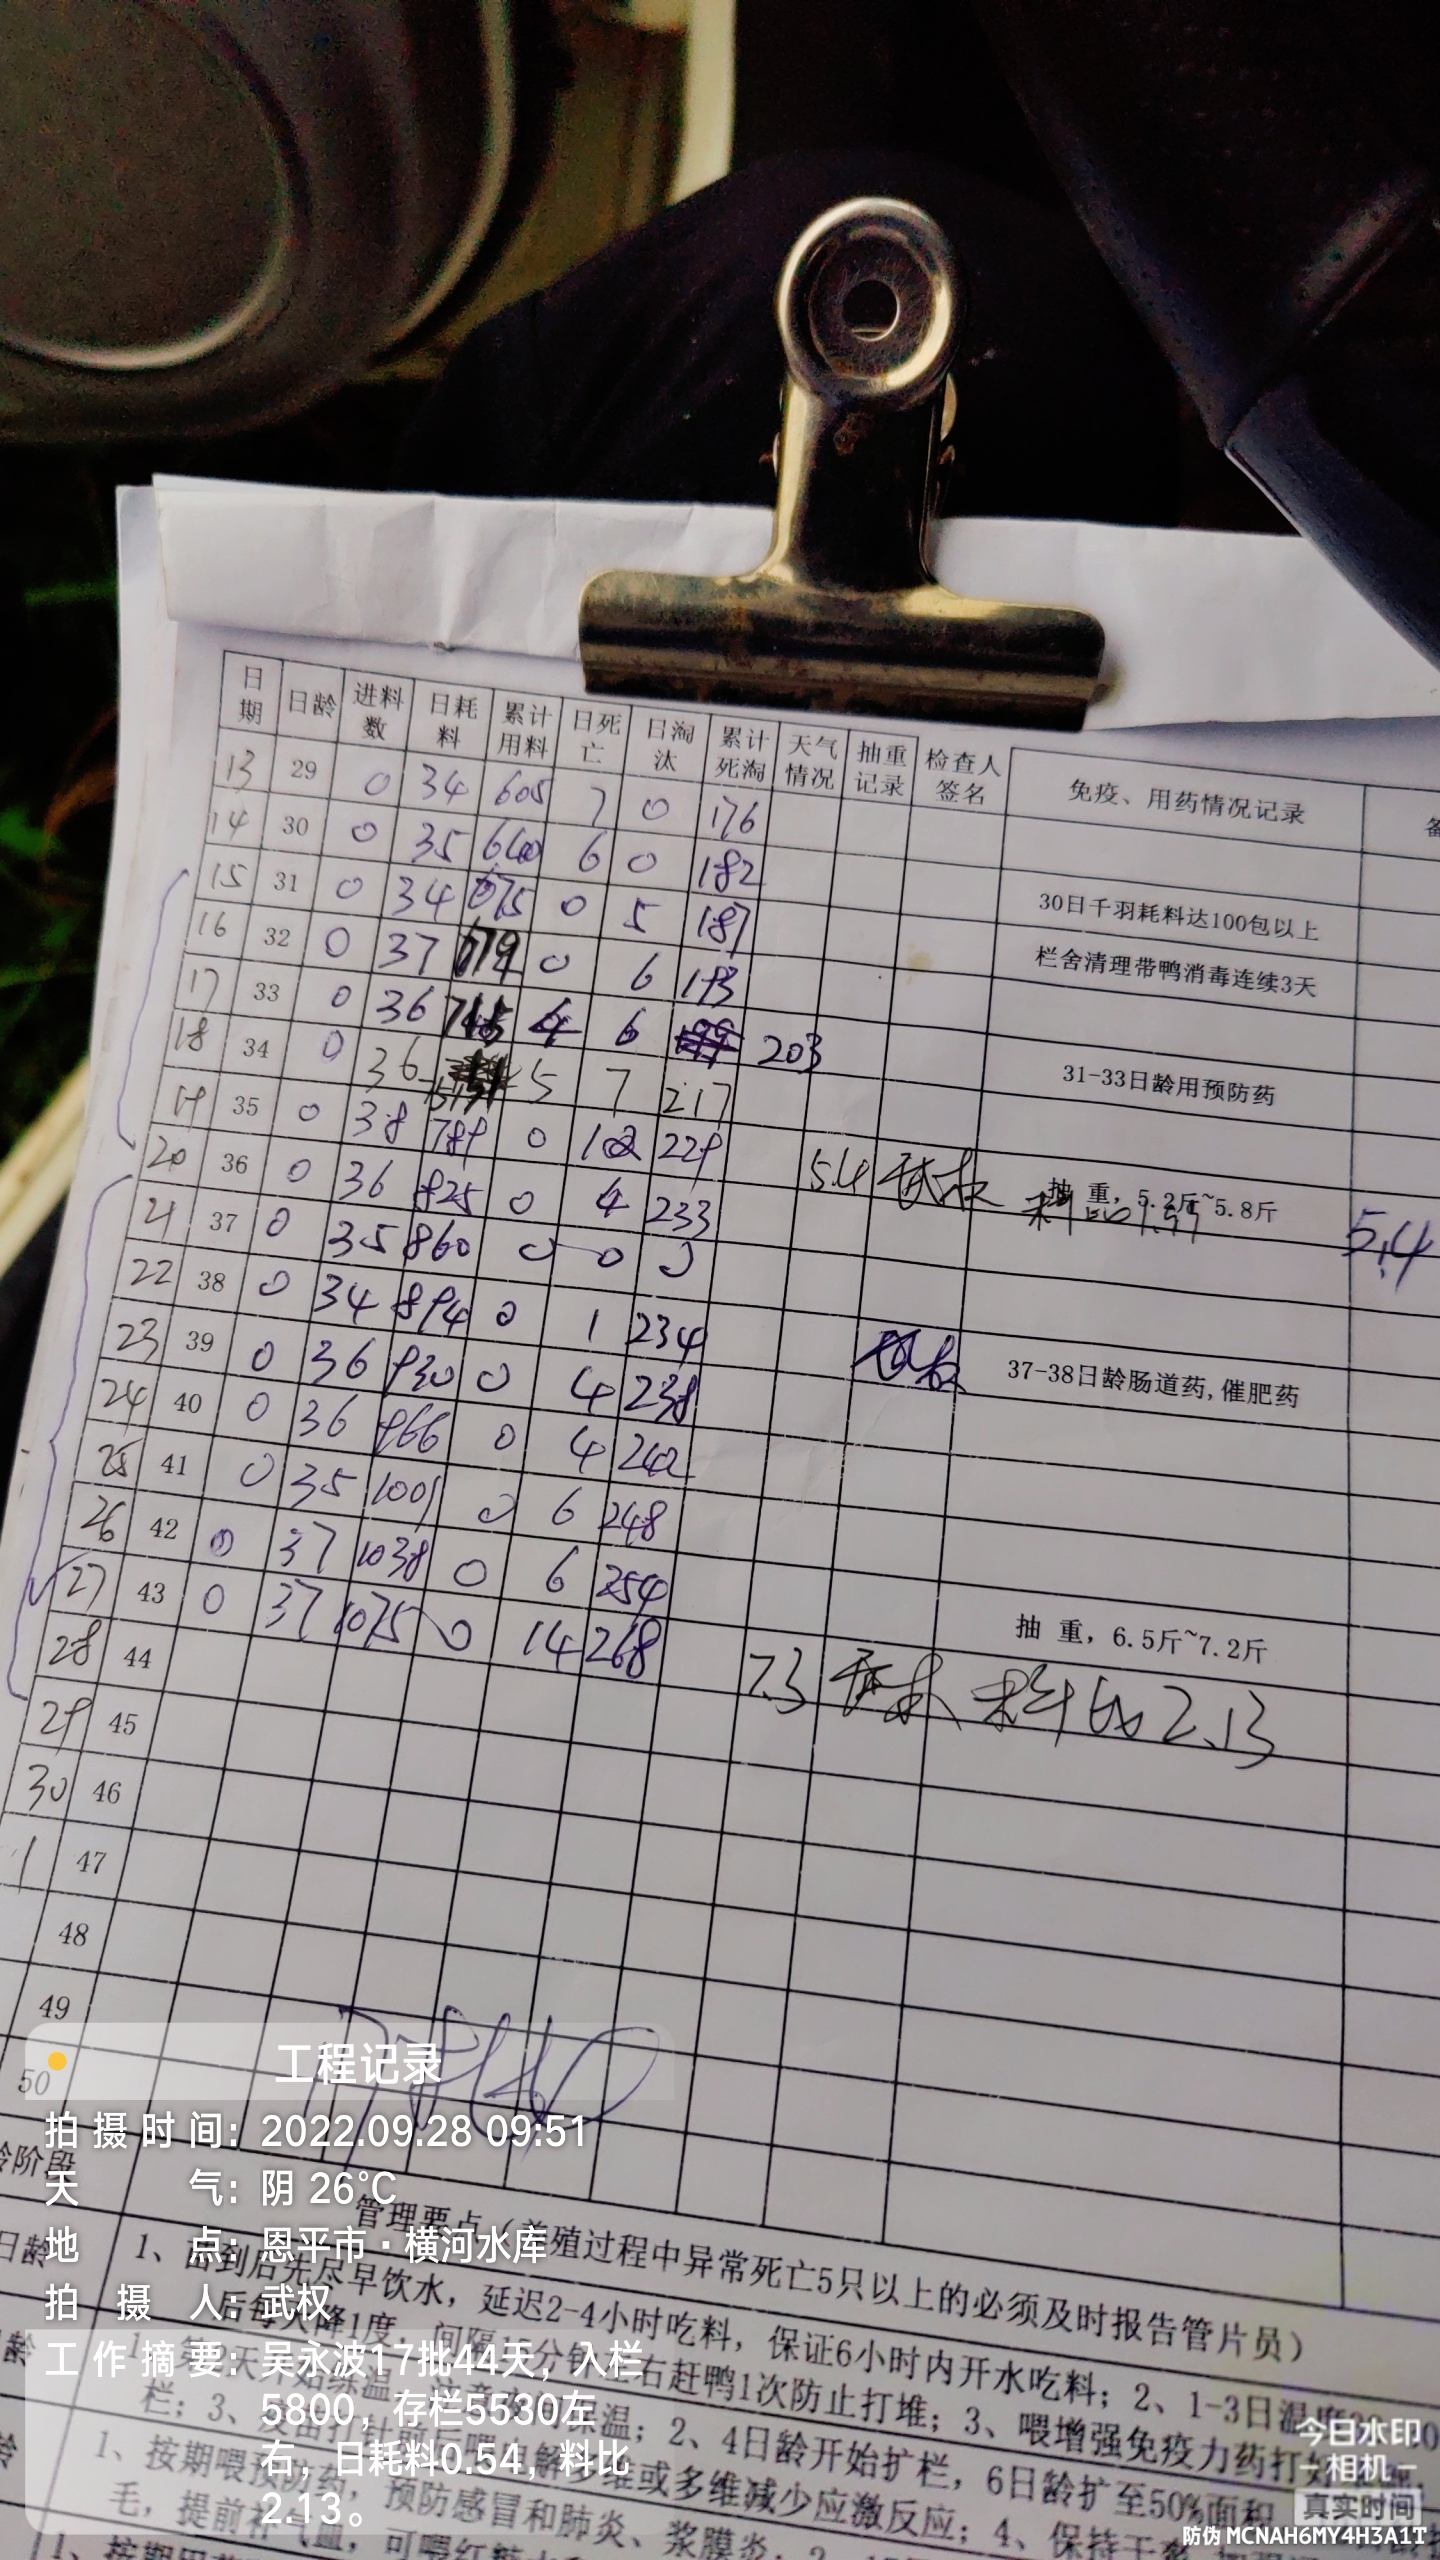 日期 日龄 进料数 日耗料 累计用料 日死亡 日淘汰 累计死淘 天气情况 抽重记录 检查人签名 免疫、用药情况记录
13 29 0 34 605 7 0 176
14 30 0 35 640 6 0 182
15 31 0 34 675 0 5 187 30日千羽耗料达100包以上
16 32 0 37 0 6 193 栏舍清理带鸭消毒连续3天
17 33 0 36 4 6 203
18 34 0 36 5 7 217 31-33日龄用预防药
19 35 0 38 789 0 229
20 36 0 36 825 0 4 233 5.4 抽 重，5.2斤~5.8斤 5.4
21 37 0 35 860 0 0 0
22 38 0 34 894 0 1 234
23 39 0 36 930 0 4 238 37-38日龄肠道药,催肥药
24 40 0 36 966 0 4 242
25 41 0 35 1001 0 6 248
26 42 0 37 1038 0 6 254
27 43 0 37 1075 0 14 268 抽 重，6.5斤~7.2斤
28 44 7.3 料比2.13
29 45
30 46
1 47
48
49
50
龄阶段 管理要点（养殖过程中异常死亡5只以上的必须及时报告管片员）
日龄 1、苗到后先尽早饮水，延迟2-4小时吃料，保证6小时内开水吃料；2、1-3日温度
后每天降1度 间隔 分钟左右赶鸭1次防止打堆；3、喂增强免疫力药打
温；2、4日龄开始扩栏，6日龄扩至50%面积
栏；3、
解多维或多维减少应激反应；4、保持干
1、按期喂预防药，预防感冒和肺炎、浆膜炎
毛，提前补气血，可喂红糖水
工程记录
拍摄时间：2022.09.28 09:51
天气：阴 26℃
地点：恩平市·横河水库
拍摄人：武权
工作摘要：吴永波17批44天，入栏
5800，存栏5530左
右，日耗料0.54，料比
2.13。
今日水印
相机
真实时间
防伪 MCNAH6MY4H3A1T